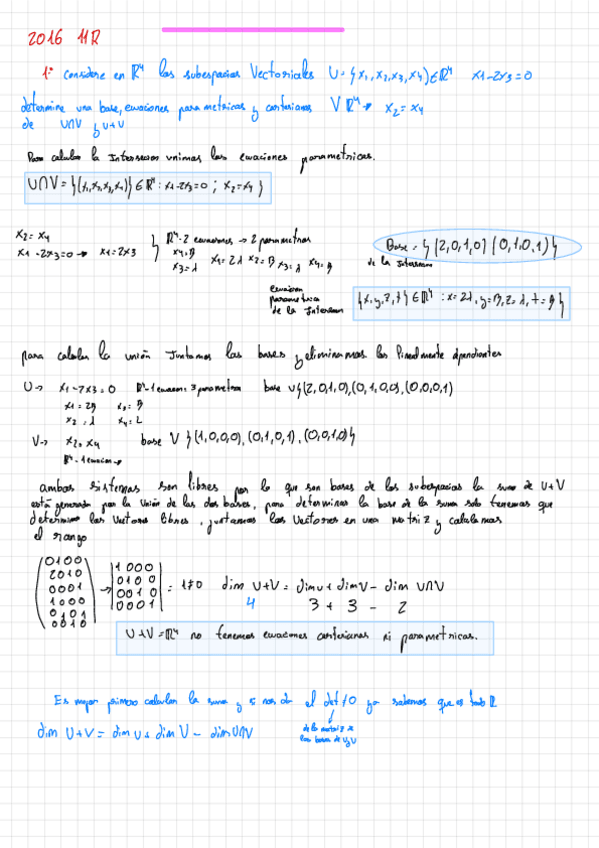 2016 1ªR
1º Considere en ℝ⁴ los subespacios Vectoriales U={x₁,x₂,x₃,x₄)∈ℝ⁴ x₁-2x₃=0
determine una base, ecuaciones parametricas y cartesianas V ℝ⁴→ x₂=x₄
de U∩V y U+V
Para calcular la Interseccion unimos las ecuaciones parametricas.
U∩V={(x₁,x₂,x₃,x₄)}∈ℝ⁴: x₁-2x₃=0 ; x₂=x₄}
x₂=x₄
x₁-2x₃=0→ x₁=2x₃
ℝ⁴-2 ecuaciones → 2 parametros
x₄=β
x₃=λ x₁=2λ x₂=β x₃=λ x₄=β
Base={(2,0,1,0)(0,1,0,1)}
de la Interseccion
ecuacion
parametrica
de la Interseccion
{x,y,z,t}∈ℝ⁴: x=2λ, y=β, z=λ, t=β}
para calcular la unión Juntamos las bases y eliminamos los linealmente dependientes
U→ x₁-2x₃=0 ℝ⁴-1 ecuacion=3 parametros base U{(2,0,1,0),(0,1,0,0),(0,0,0,1)
V→ x₂=x₄ base V {(1,0,0,0),(0,1,0,1),(0,0,1,0)}
ℝ⁴-1 ecuacion→
ambos sistemas son libres por lo que son bases de los subespacios la suma de U+V
está generada por la Unión de las dos bases, para determinar la base de la suma solo tenemos que
determinar los Vectores libres, juntamos los Vectores en una matriz y calculamos
el rango
0100
2010
0001
1000
0101
0010
→
1000
0100
0010
0001
=1≠0 dim U+V = dim U + dim V - dim U∩V
4 3 + 3 - 2
U+V=ℝ⁴ no tenemos ecuaciones cartesianas ni parametricas.
Es mejor primero calcular la suma y si nos da el det≠0 ya sabemos que es todo ℝ
dim U+V = dim U + dim V - dim U∩V
de la matriz de
las bases de U y V